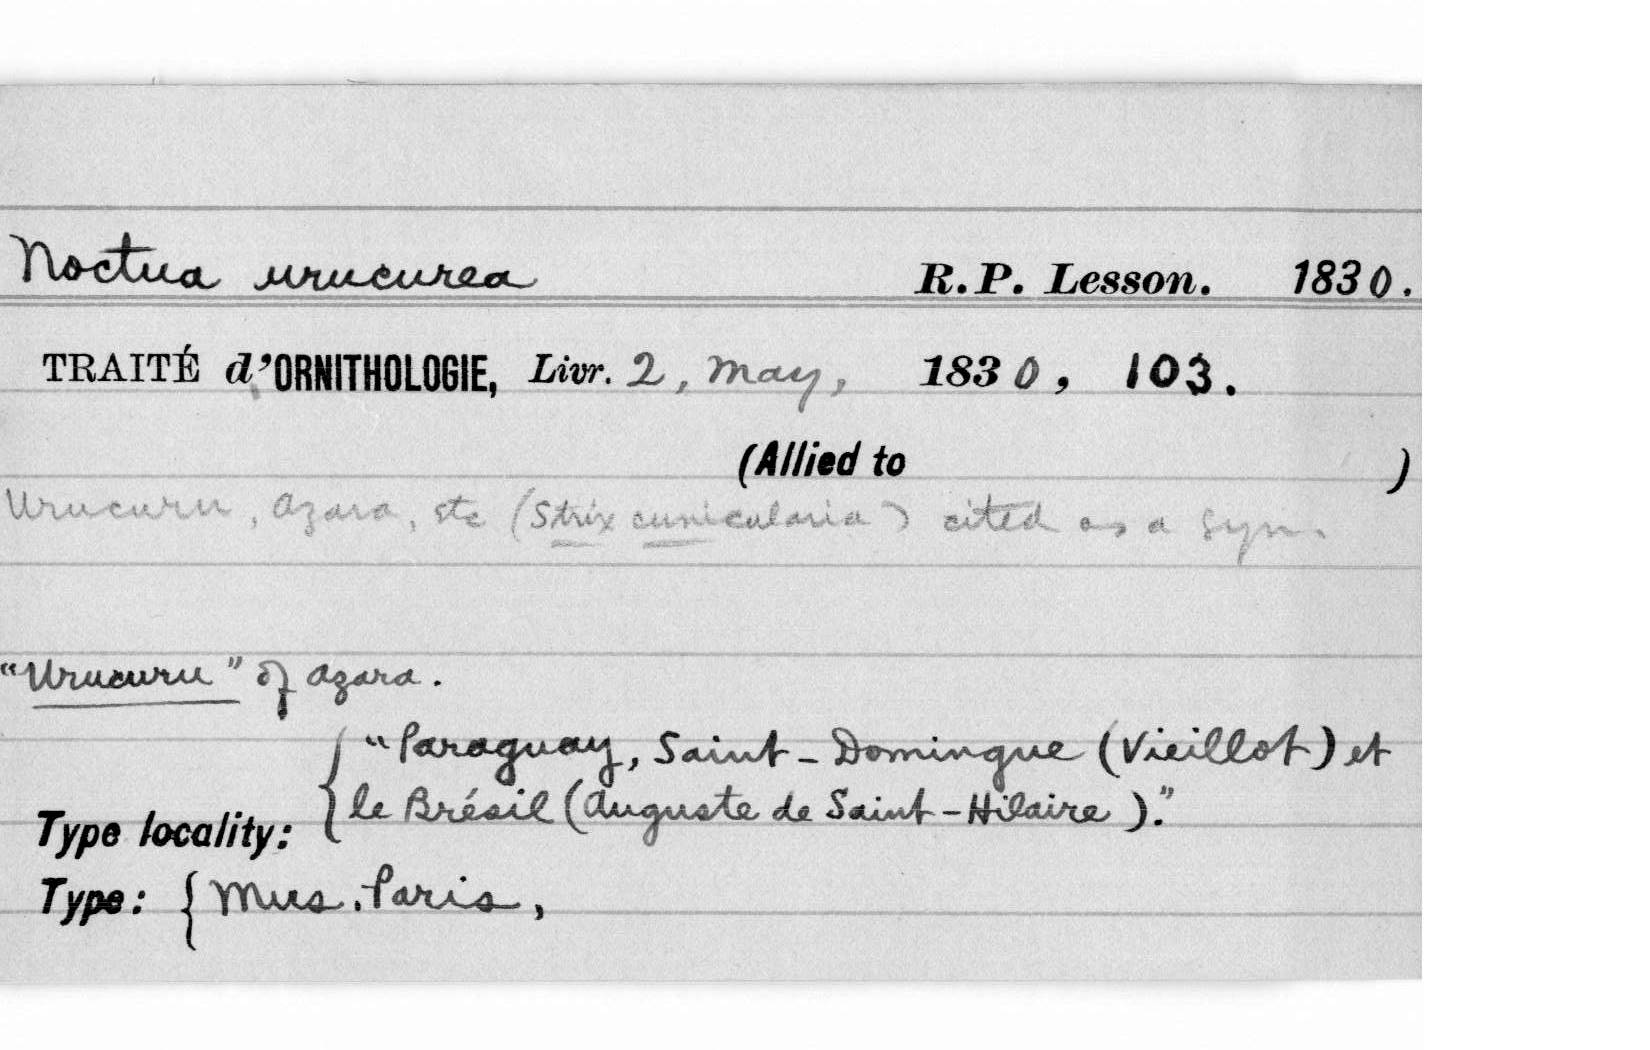 Noctua urucurea R.P. Lesson. 1830.
TRAITÉ d'ORNITHOLOGIE, Livr. 2, May, 1830, 103.
(Allied to )
Urucuru, Azara, etc (Strix cunicularia) cited as a syn.
"Urucuru" of Azara.
"Paraguay, Saint-Domingue (Vieillot) et
le Brésil (Auguste de Saint-Hilaire)."
Type locality:
Type: { Mus. Paris,